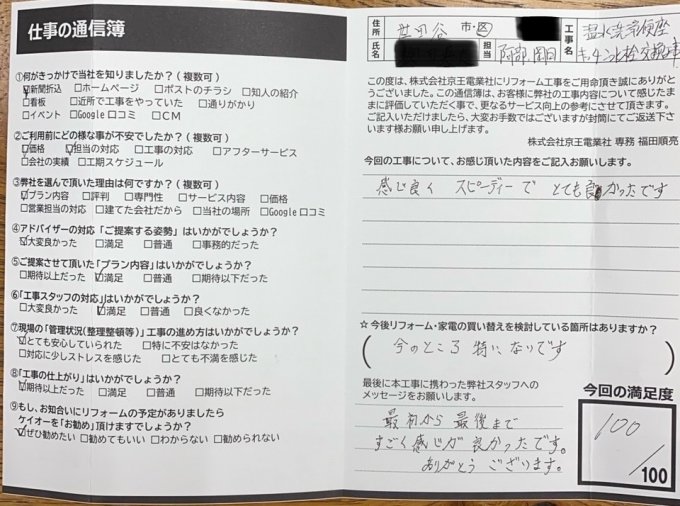 仕事の通信簿
①何がきっかけで当社を知りましたか?(複数可)
☑新聞折込 □ホームページ □ポストのチラシ □知人の紹介
□看板 □近所で工事をやっていた □通りがかり
□イベント □Google口コミ □CM
②ご利用前にどの様な事が不安でしたか?(複数可)
☑価格 ☑担当の対応 □工事の対応 □アフターサービス
□会社の実績 □工期スケジュール
③弊社を選んで頂いた理由は何ですか?(複数可)
☑プラン内容 □評判 □専門性 □サービス内容 □価格
□営業担当の対応 □建てた会社だから □当社の場所 □Google口コミ
④アドバイザーの対応「ご提案する姿勢」はいかがでしょうか?
☑大変良かった □満足 □普通 □事務的だった
⑤ご提案させて頂いた「プラン内容」はいかがでしょうか?
□期待以上だった ☑満足 □普通 □期待以下だった
⑥「工事スタッフの対応」はいかがでしょうか?
□大変良かった ☑満足 □普通 □良くなかった
⑦現場の「管理状況(整理整頓等)」工事の進め方はいかがでしょうか?
☑とても安心していられた □特に不安はなかった
□対応に少しストレスを感じた □とても不満を感じた
⑧「工事の仕上がり」はいかがでしょうか?
☑期待以上だった □満足 □普通 □期待以下だった
⑨もし、お知合いにリフォームの予定がありましたら
ケイオーを「お勧め」頂けますでしょうか?
☑ぜひ勧めたい □勧めてもいい □わからない □勧められない
住所 世田谷 市・区
氏名 担当 阿部、岡田
工事名 温水洗浄便座
キッチン水栓交換工事
この度は、株式会社京王電業社にリフォーム工事をご用命頂き誠にありがと
うございました。この通信簿は、お客様に弊社の工事内容について感じたま
まに評価していただく事で、更なるサービス向上の参考にさせて頂きます。
ご記入いただけましたら、大変お手数ではございますが封筒にてご返送下さ
います様お願い申し上げます。
株式会社京王電業社 専務 福田順亮
今回の工事について、お感じ頂いた内容をご記入お願いします。
感じ良く スピーディーで とても良かったです
☆今後リフォーム・家電の買い替えを検討している箇所はありますか?
(今のところ 特にないです)
最後に本工事に携わった弊社スタッフへの
メッセージをお願いします。
最初から 最後まで
すごく感じが良かったです。
ありがとう ございます。
今回の満足度
100/100